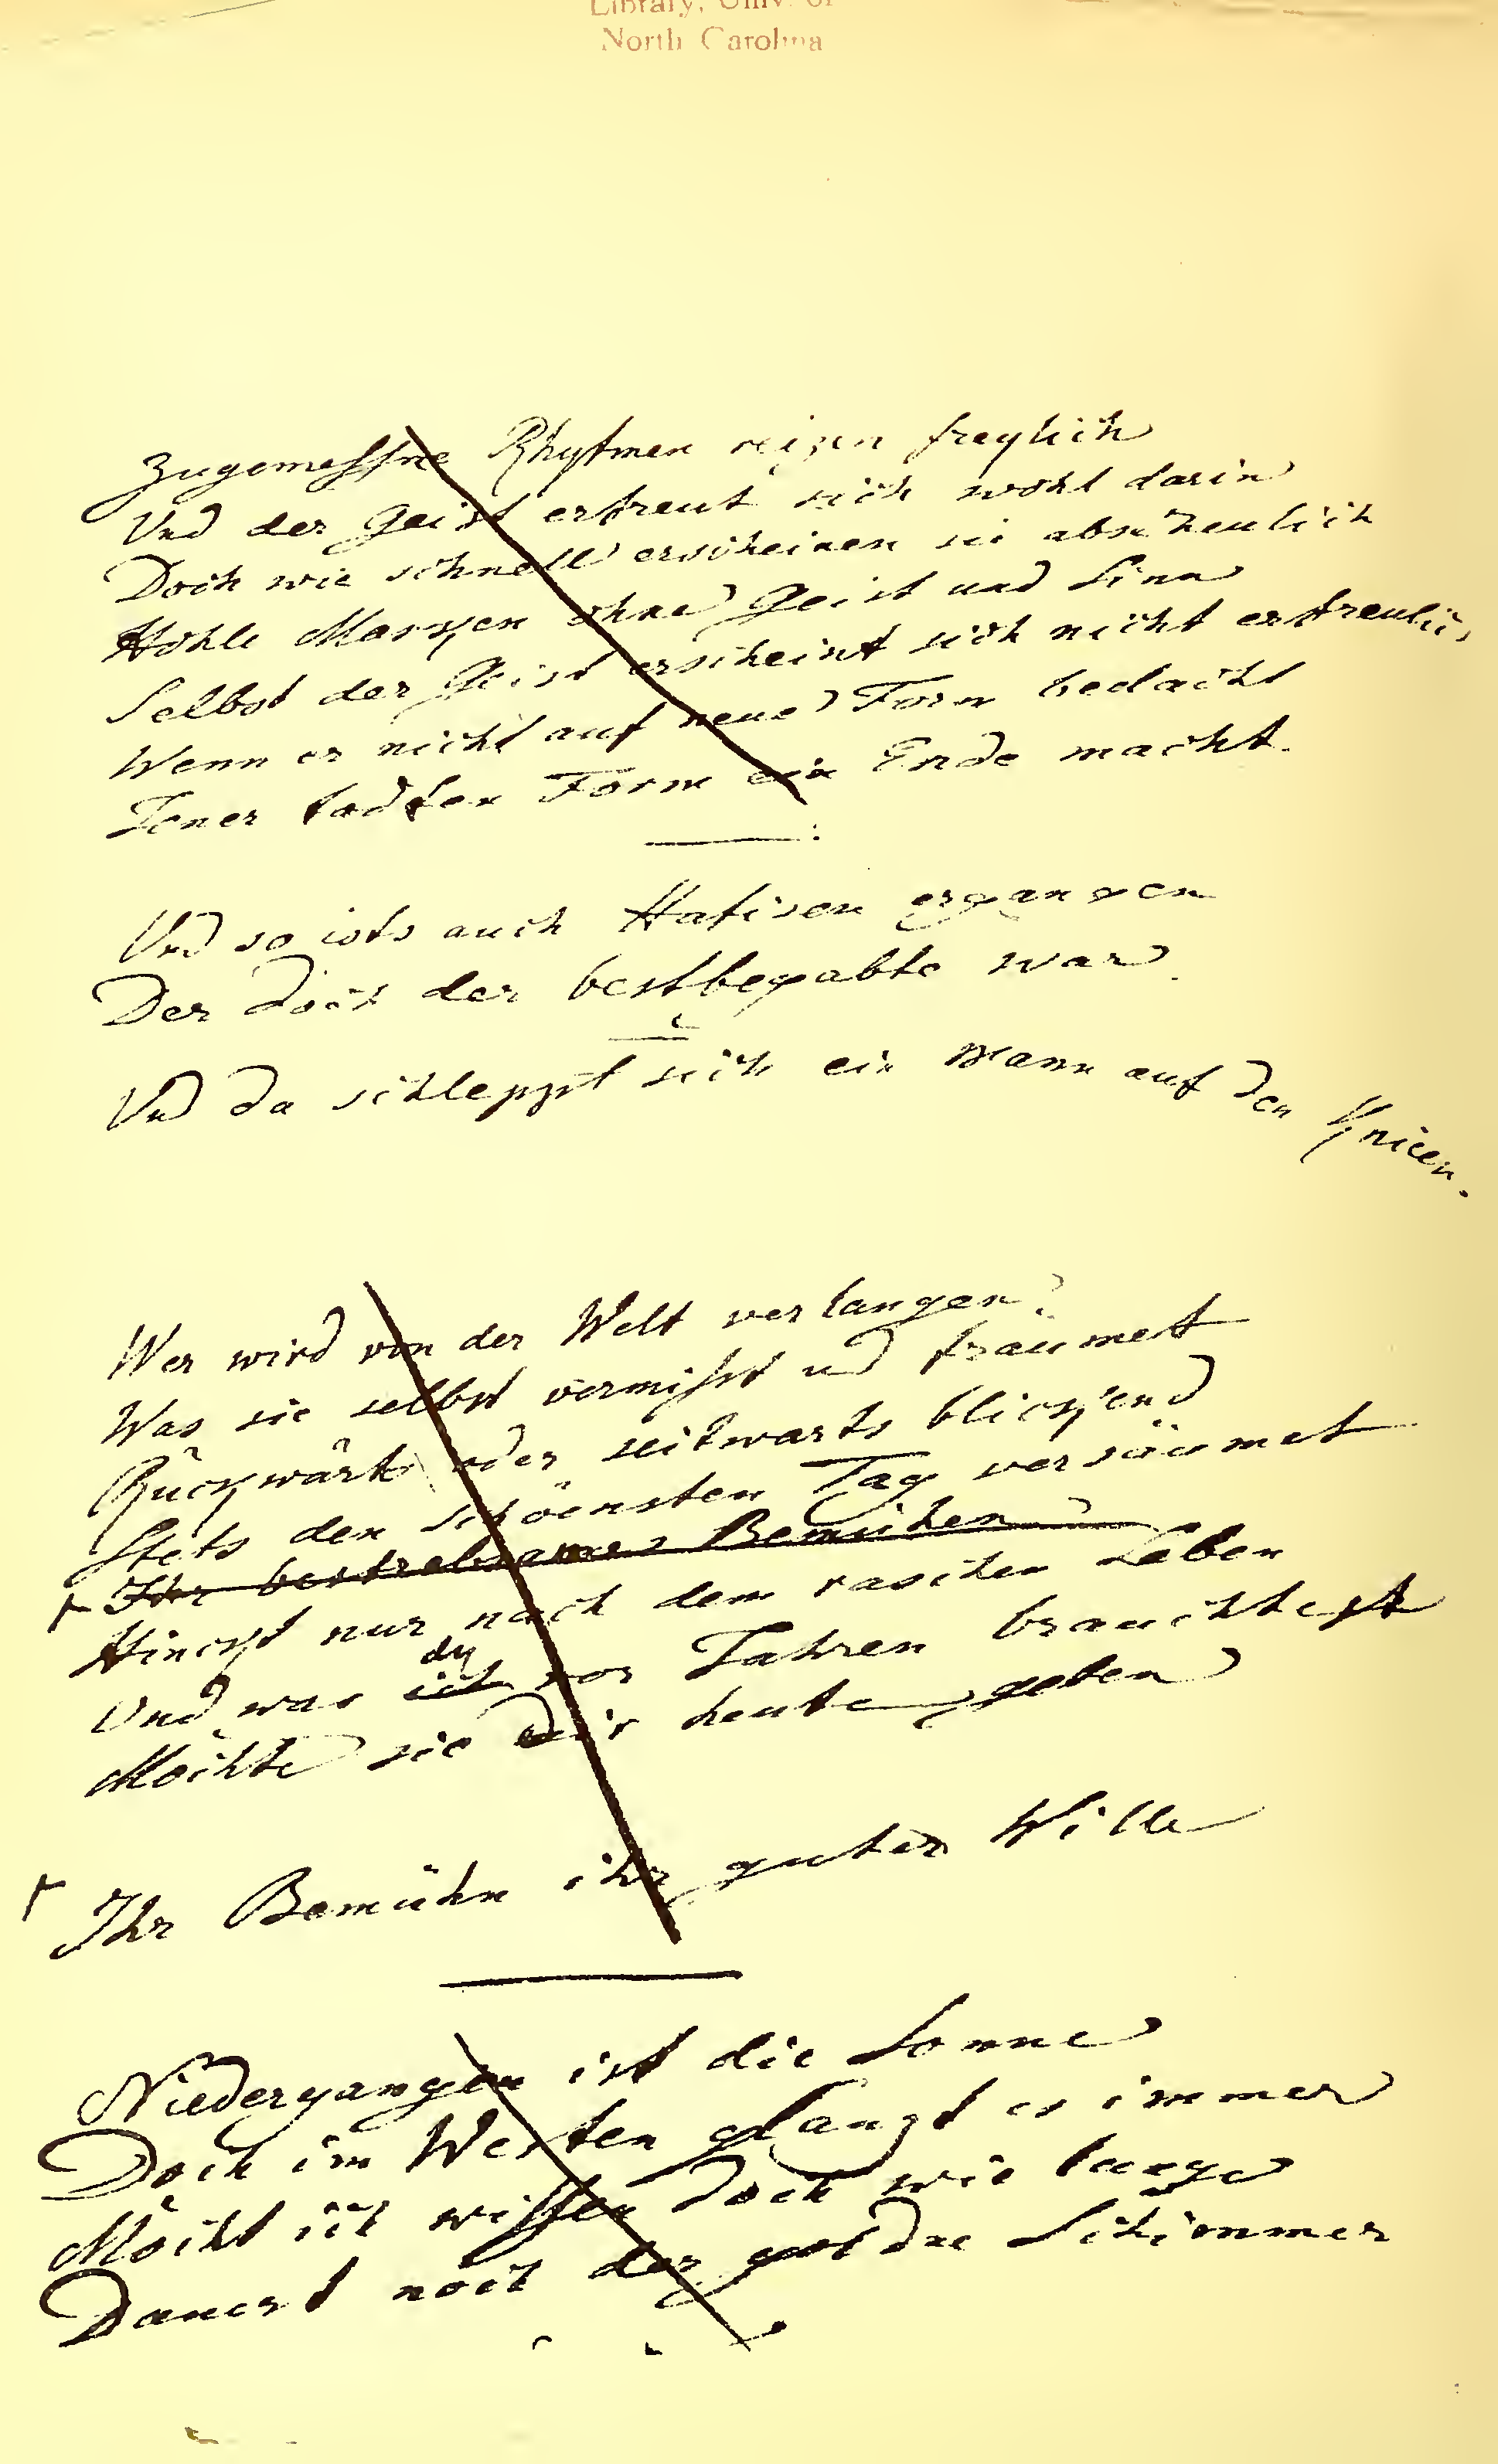 Library, Univ. of
North Carolina
Zugemessne Rhytmen reizen freylich
Und der Geist erfreut sich wohl darin
Doch wie schnell erscheinen sie abscheulich
Hohle Masken ohne Geist und Sinn
Selbst der Geist erscheint sich nicht erfreulich
Wenn er nicht auf neue Form bedacht
Jener todten Form ein Ende macht.
Und so ists auch Hafisen ergangen
Der doch der bestbegabte war.
Und da schleppt sich ein Mann auf den Knieen.
Wer wird von der Welt verlangen?
Was sie selbst vermisst und träumet
Rückwärts oder seitwarts blickend
Stets den schöensten Tag versäumet
Ihr bestrebsames Bemühen
Hinckt nur nach dem raschen Leben
Und was ich du vor Jahren brauchtest
Möchte sie dir heute geben
Ihr Bemühn ihr guter Wille
Niedergangen ist die Sonne
Doch im Westen glänzt es immer
Möcht ich wissen doch wie lange
Dauert noch der goldne Schimmer